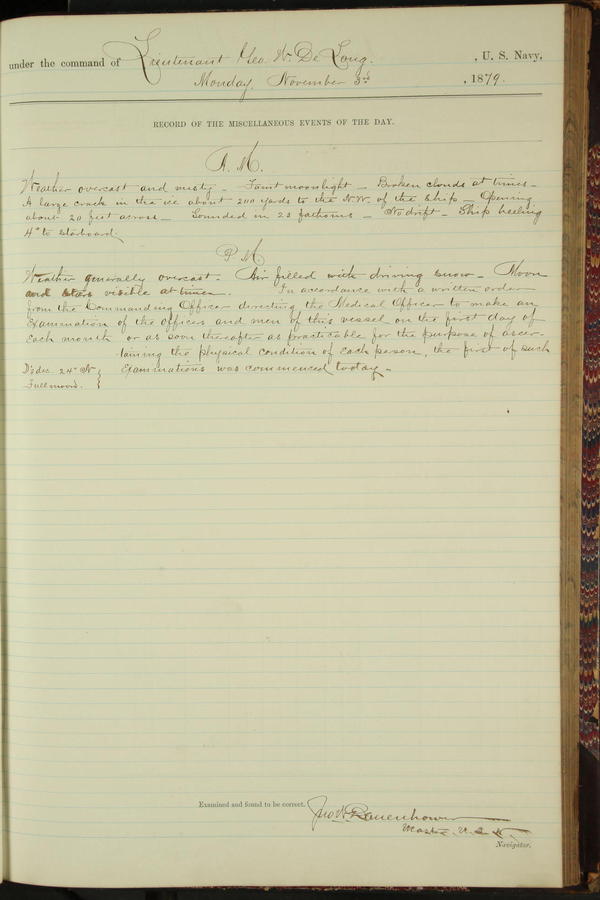 under the command of Lieutenant Geo. W. De Long. , U. S. Navy,
Monday, November 3rd , 1879.
RECORD OF THE MISCELLANEOUS EVENTS OF THE DAY.
A. M.
Weather overcast and misty – Faint moonlight – Broken clouds at times –
A large crack in the ice about 200 yards to the N.W. of the ship – Opening
about 20 feet across – Sounded in 23 fathoms – No drift – Ship heeling
4° to starboard.
P M
Weather generally overcast. Air filled with driving snow – Moon
and stars visible at times. In accordance with a written order
from the Commanding Officer directing the Medical Officer to make an
Examination of the officers and men of this vessel on the first day of
Each month or as soon thereafter as practicable for the purpose of ascer-
taining the physical condition of Each person, the first of such
☽'s dec. 24° N } Examinations was commenced today –
Full moon. }
Examined and found to be correct. Jno W. Danenhower
Master, U.S.N.
Navigator.